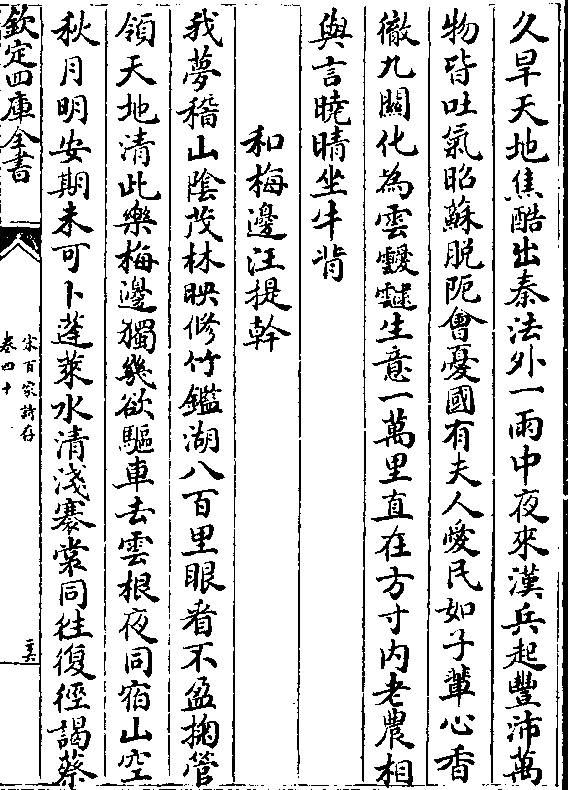 久旱天地焦酷出秦法外一雨中夜來漢兵起豐沛萬
物皆吐氣昭蘇脫阨會憂國有夫人愛民如子輩心香
徹九關化為雲靉靆生意一萬里直在方寸内老農相
與言曉晴坐牛背
和梅邊汪提幹
我夢稽山陰茂林映修竹鑑湖八百里眼看不盈掬管
領天地清此樂梅邊獨幾欲驅車去雲根夜同宿山空
秋月明安期未可卜蓬萊水清淺褰裳同往復徑謁蔡
欽定四庫全書
宋百家詩存
卷四十